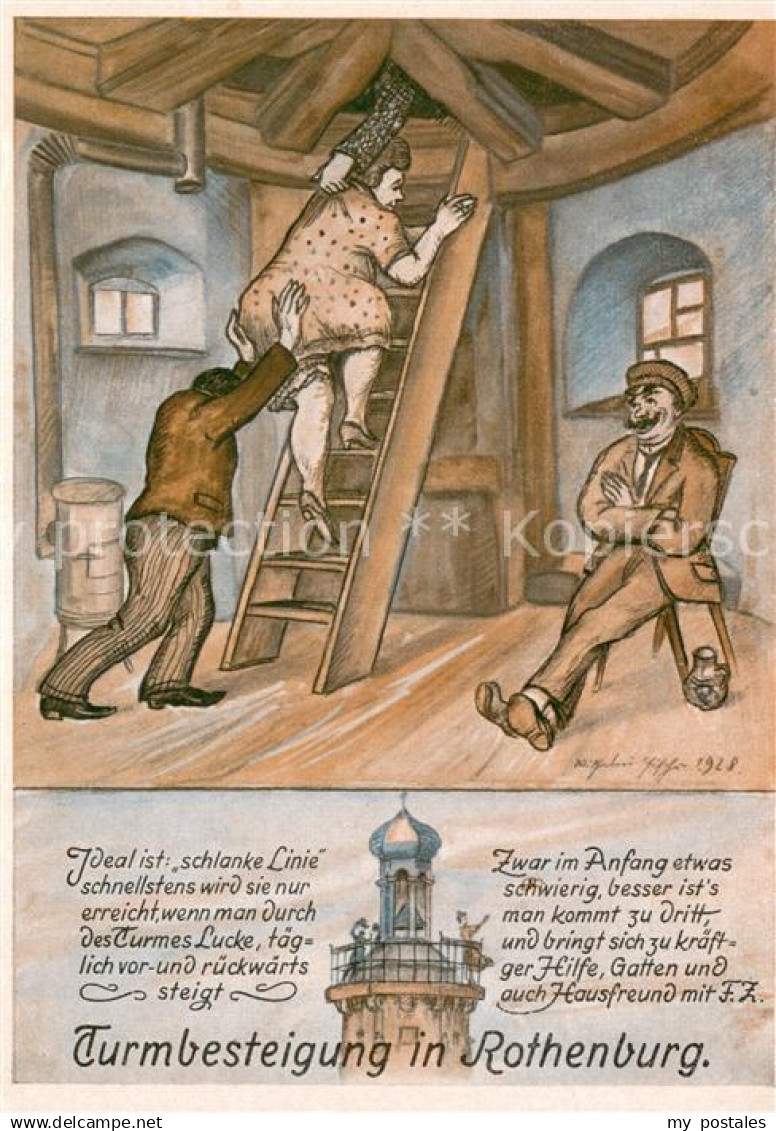 Wilhelm Fischer 1928.
Ideal ist: „schlanke Linie"
schnellstens wird sie nur
erreicht, wenn man durch
des Turmes Lucke, täg=
lich vor-und rückwärts
steigt
Zwar im Anfang etwas
schwierig, besser ist's
man kommt zu dritt,
und bringt sich zu kräft=
ger Hilfe, Gatten und
auch Hausfreund mit F.Z.
Turmbesteigung in Rothenburg.
my postales